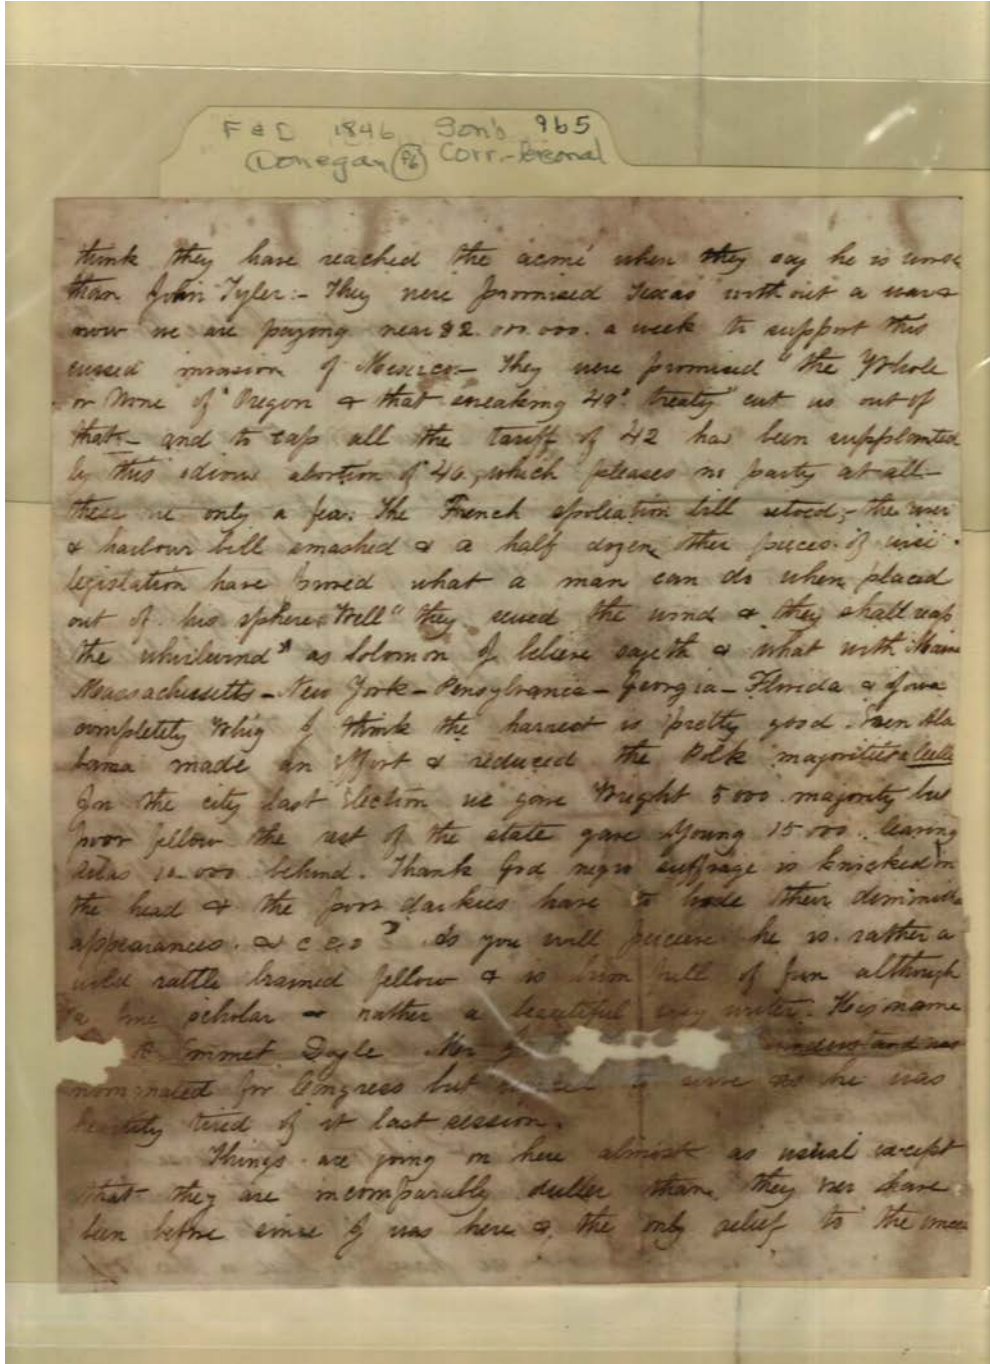 F & D 1846 Son's 965
(Donegan 86) Corr.-Personal
think they have reached the acmé when they say he is worse
than John Tyler:- They were promised Texas without a war &
now we are paying near $2.000.000. a week to support this
cussed invasion of Mexico- They were promised "the Whole
or None of" Oregon & that sneaking 49° treaty cut us out of
that- and to cap all the tariff of 42 has been supplanted
by this odious abortion of 46, which pleases no party at all-
these are only a few. The French spoliation bill vetoed,- the river
& harbour bill smashed & a half dozen other pieces of
legislation have proved what a man can do when placed
out of his sphere. Well "they sewed the wind & they shall reap
the whirlwind" as Solomon I believe sayeth & what with Maine
Massachusetts - New York - Pensylvania - Georgia - Florida & Iowa
completely Whig I think the harvest is pretty good. Even Ala
bama made an effort & reduced the Polk majorities a little
In the city last election we gave Wright 5000 majority but
poor fellow the rest of the state gave Young 15000. leaving
Silas 10.000 behind. Thank God negro suffrage is knocked in
the head & the poor darkies have to hide their diminished
appearances. &c As you will perceive he is rather a
wild rattle brained fellow & is brim full of fun although
a fine scholar & rather a beautiful writer. His name
Emmet Doyle Mr understand was
nominated for Congress but refused to serve as he was
heartily tired of it last session.
Things are going on here almost as usual except
that they are incomparably duller than they ever have
been before since I was here & the only relief to the